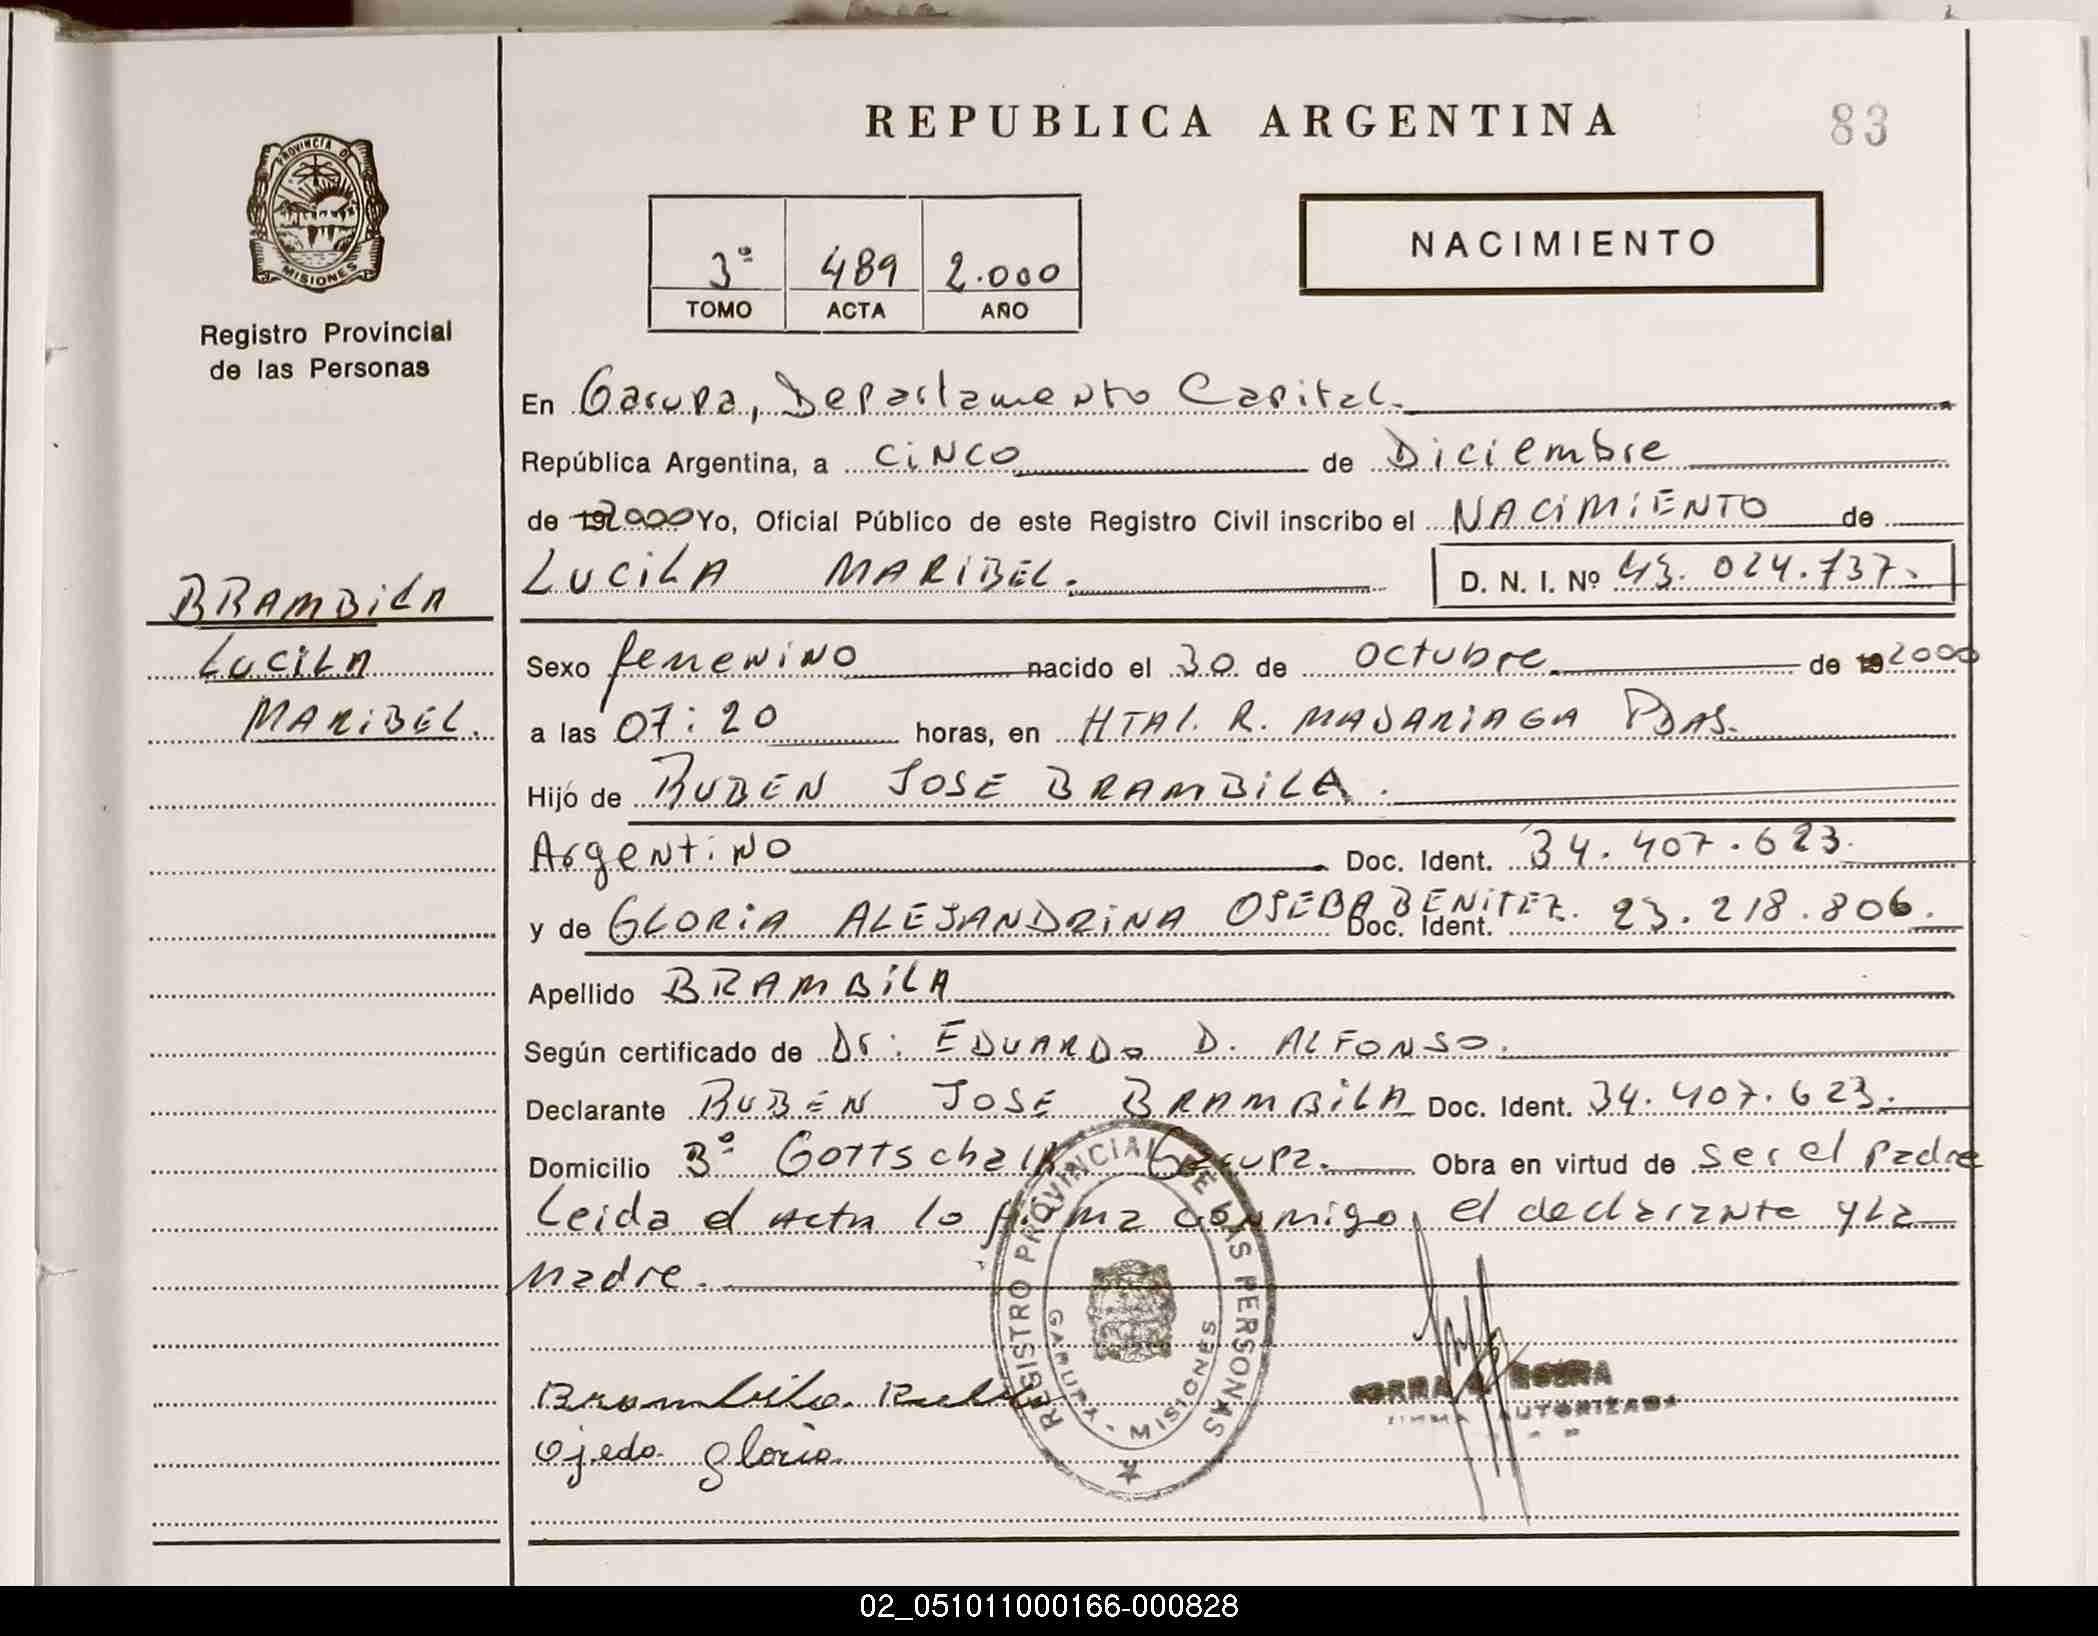 REPUBLICA ARGENTINA
83
PROVINCIA DE
MISIONES
Registro Provincial
de las Personas
3º 489 2.000
TOMO ACTA AÑO
NACIMIENTO
En Garupa, Departamento Capital.
República Argentina, a CiNCO de Diciembre
de 192000 Yo, Oficial Público de este Registro Civil inscribo el NACiMiENTO de
LUCiLA MARIBEL. D. N. I. Nº 43.024.737.
BRAMBiLA
LUCiLA
MARiBEL.
Sexo femeNiNO nacido el 30 de octubre de 192000
a las 07:20 horas, en HTAl. R. MADARiAGA PDAS.
Hijo de RUBEN JOSE BRAMBiLA.
ArgeNtiNO Doc. Ident. 34.407.623.
y de GLORiA ALEJANDRiNA OJEDA BENiTEZ. Doc. Ident. 23.218.806.
Apellido BRAMBiLA
Según certificado de Dr: EDUARDO D. ALFONSO.
Declarante RUBEN JOSE BRAMBiLA Doc. Ident. 34.407.623.
Domicilio Bº Gottschalk Garupa. Obra en virtud de ser el padre
Leida el Acta lo firma conmigo, el declarante y la
Madre.
REGISTRO PROVINCIAL DE LAS PERSONAS
GARUPA - MISIONES
Brambila Ruben
Ojeda gloria
FIRMA AUTORIZADA
02_051011000166-000828